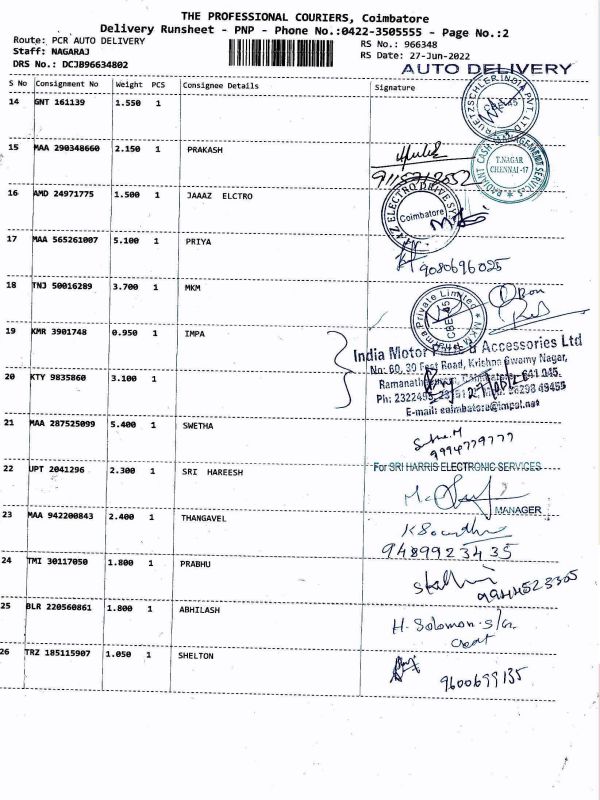 THE PROFESSIONAL COURIERS, Coimbatore
Delivery Runsheet - PNP - Phone No.:0422-3505555 - Page No.:2
Route: PCR AUTO DELIVERY
Staff: NAGARAJ
DRS No.: DCJB96634802
RS No.: 966348
RS Date: 27-Jun-2022
AUTO DELIVERY
S No Consignment No Weight PCS Consignee Details Signature
14 GNT 161139 1.550 1
15 MAA 290348660 2.150 1 PRAKASH
T.NAGAR
CHENNAI-17
16 AMD 24971775 1.500 1 JAAAZ ELCTRO
Coimbatore
17 MAA 565261007 5.100 1 PRIYA
9080696025
18 TNJ 50016289 3.700 1 MKM
19 KMR 3901748 0.950 1 IMPA
India Motor Parts & Accessories Ltd
No: 60, 30 Feet Road, Krishna Swamy Nagar,
E-mail: coimbatore@impal.net
20 KTY 9835860 3.100 1
21 MAA 287525099 5.400 1 SWETHA
9994779777
22 UPT 2041296 2.300 1 SRI HAREESH
For SRI HARRIS ELECTRONIC SERVICES
MANAGER
23 MAA 942200843 2.400 1 THANGAVEL
9489923435
24 TMI 30117050 1.800 1 PRABHU
9944523305
25 BLR 220560861 1.800 1 ABHILASH
H. Solomon
26 TRZ 185115907 1.050 1 SHELTON
9600699135